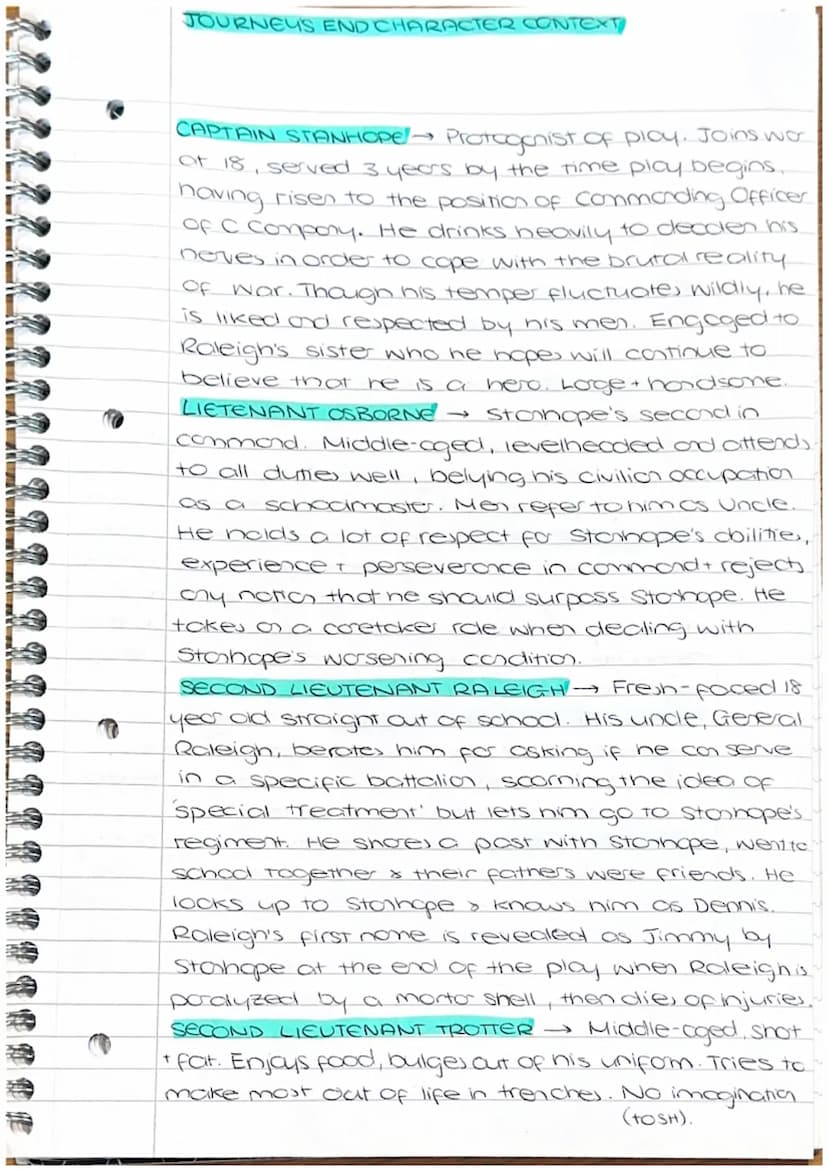 JOURNEYS END CHARACTER CONTEXT
CAPTAIN STANHOPE → Protagonist of play. Joins war
at 18, served 3 years by the time play begins,
having risen to the position of Commanding Officer
of C Company. He drinks heavily to deaden his
nerves in order to cope with the brutal reality
of war. Though his temper fluctuates wildly, he
is liked and respected by his men. Engaged to
Raleigh's sister who he hopes will continue to
believe that he is a hero. Large + handsome.
LIETENANT OSBORNE → Stanhope's second in
command. Middle-aged, levelheaded and attends
to all duties well, belying his civilian occupation
as a schoolmaster. Men refer to him as Uncle.
He holds a lot of respect for Stanhope's abilities,
experience + perseverance in command + rejects
any notion that he should surpass Stanhope. He
takes on a caretaker role when dealing with
Stanhope's worsening condition.
SECOND LIEUTENANT RALEIGH → Fresh-faced 18
year old straight out of school. His uncle, General
Raleigh, berates him for asking if he can serve
in a specific battalion, scorning the idea of
'special treatment' but lets him go to Stanhope's
regiment. He shares a past with Stanhope, went to
school together & their fathers were friends. He
looks up to Stanhope & knows him as Dennis.
Raleigh's first name is revealed as Jimmy by
Stanhope at the end of the play when Raleigh is
paralyzed by a mortar shell, then dies of injuries.
SECOND LIEUTENANT TROTTER → Middle-aged, short
+ fat. Enjoys food, bulges out of his uniform. Tries to
make most out of life in trenches. No imagination
(to SH).